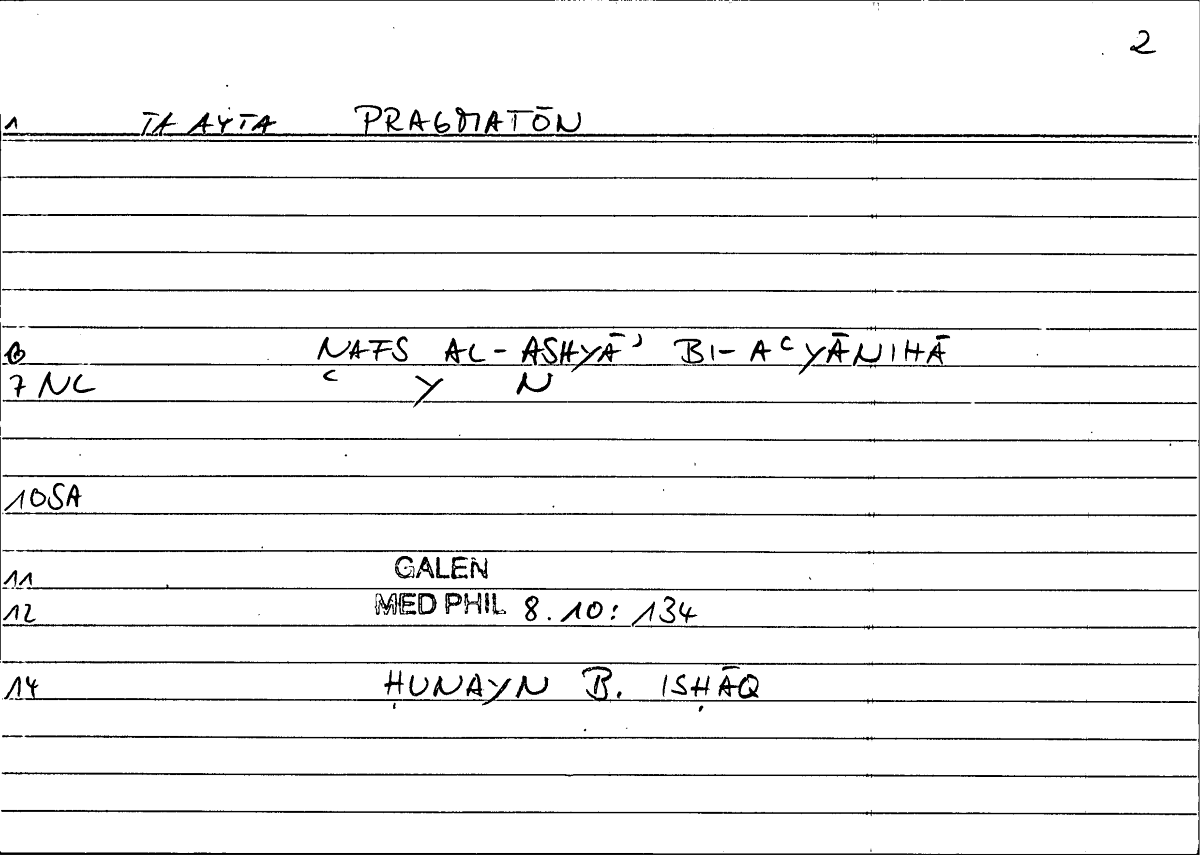 2
1 TA AYTA PRAGMATŌN
6 NAFS AL-ASHYĀʾ BI-AʿYĀNIHĀ
7 NL ʿ Y N
10SA
11 GALEN
12 MED PHIL 8.10: 134
14 ḤUNAYN B. ISḤĀQ